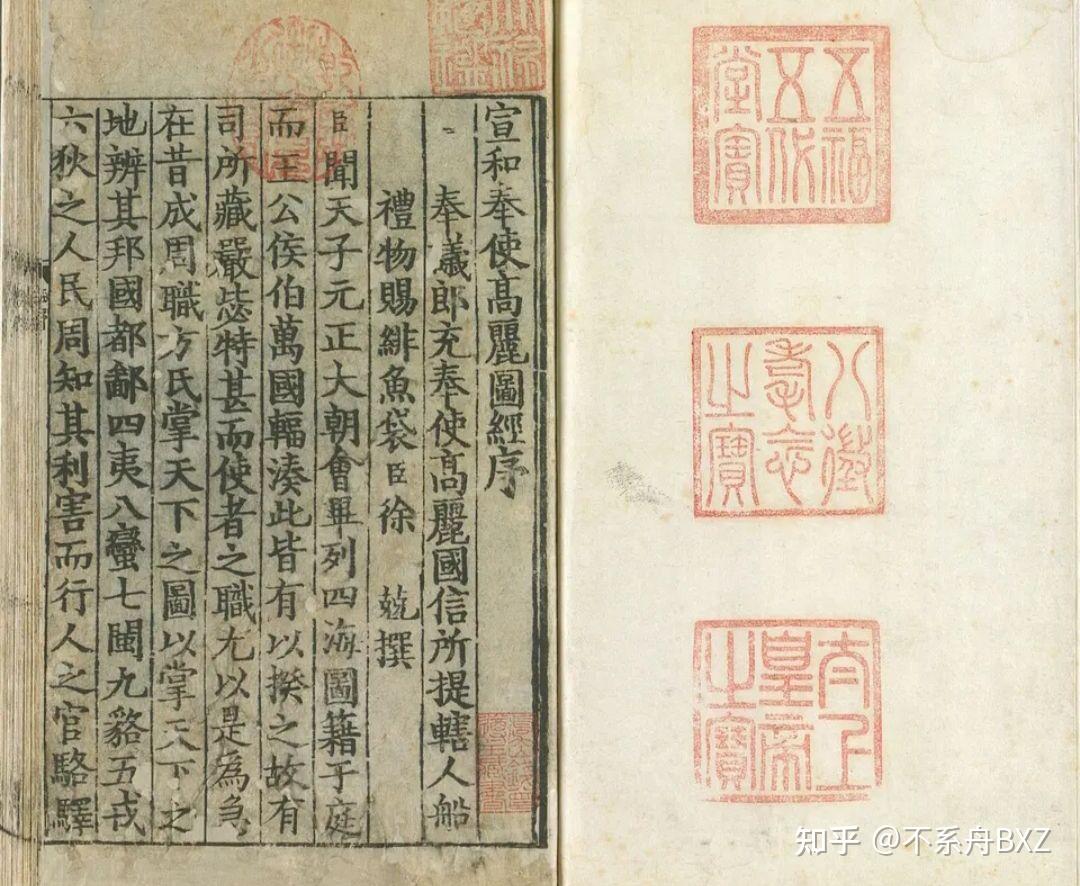 五福
五代
堂寶
八徵
耄念
之寶
太上
皇帝
之寶
宣和奉使高麗圖經序
奉議郎充奉使高麗國信所提轄人船
禮物賜緋魚袋臣徐 兢撰
臣聞天子元正大朝會畢列四海圖籍于庭
而王公侯伯萬國輻湊此皆有以揆之故有
司所藏嚴毖特甚而使者之職尤以是為急
在昔成周職方氏掌天下之圖以掌天下之
地辨其邦國都鄙四夷八蠻七閩九貉五戎
六狄之人民周知其利害而行人之官駱驛
知乎 @不系舟BXZ